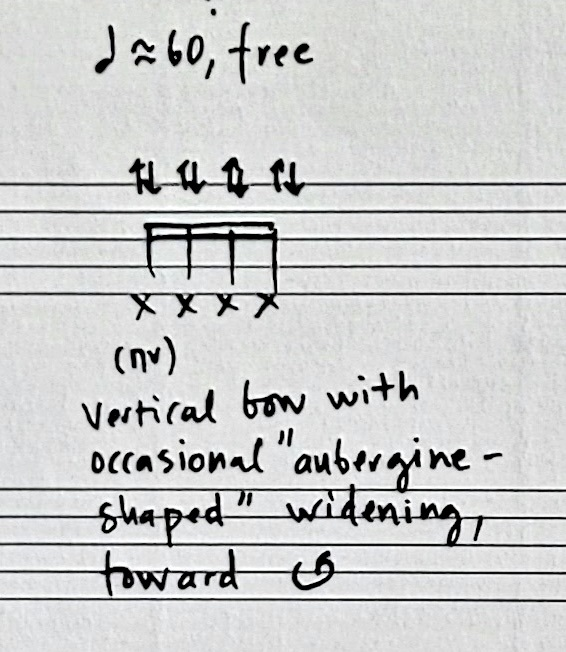 ♩≈60, free
⇅ ⇅ ⇅ ⇅
(nv)
vertical bow with
occasional "aubergine-
shaped" widening,
toward ↺